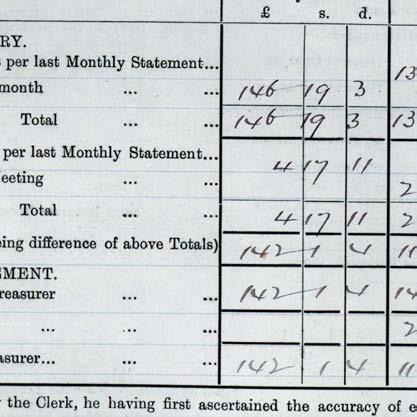 £ s. d.
RY.
per last Monthly Statement... 13
month ... ... 146 19 3
Total ... ... 146 19 3 13
per last Monthly Statement... 4 17 11
eeting ... ... 2
Total ... ... 4 17 11 2
ing difference of above Totals) 142 1 4 11
EMENT.
reasurer ... ... 142 1 4 14
... ... 2
asurer... ... ... 142 1 4 11
the Clerk, he having first ascertained the accuracy of e